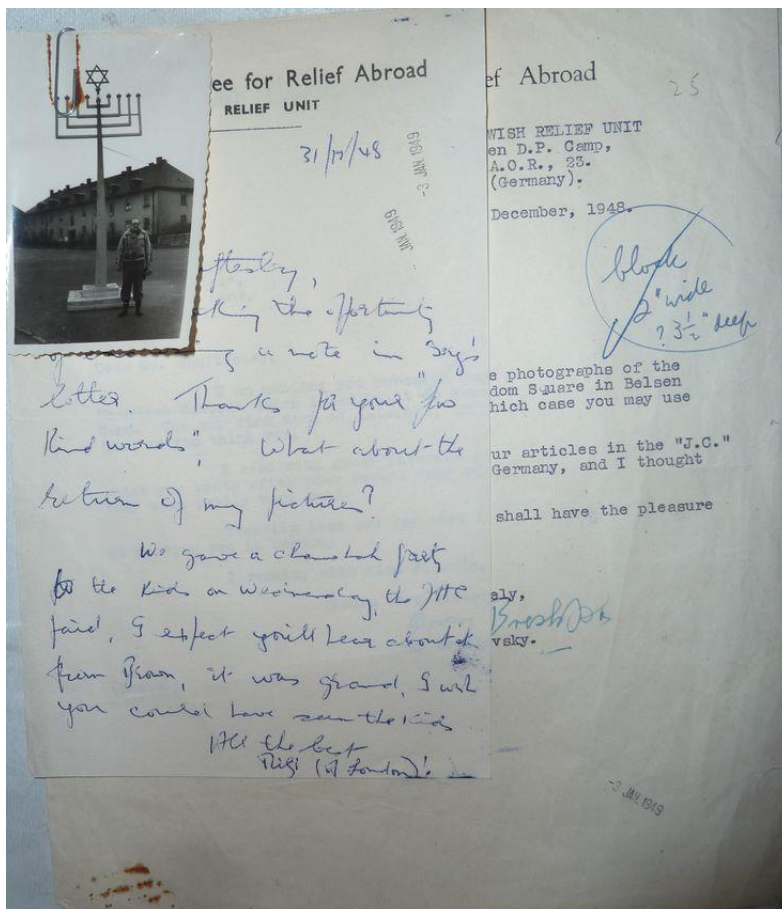 ee for Relief Abroad
RELIEF UNIT
31/12/48
-3 JAN 1949
JAN 1949
king the opportunity
a note in
letter. Thanks for your "few
kind words". What about the
return of my pictures?
We gave a chanukah party
to the kids on Wednesday, the
paid, I expect you'll hear about it
from Brown, it was grand, I wish
you could have seen the kids
All the best
(of London)!
ef Abroad
25
WISH RELIEF UNIT
en D.P. Camp,
A.O.R., 23.
(Germany).
December, 1948.
block
2" wide
? 3½" deep
e photographs of the
dom Square in Belsen
hich case you may use
ur articles in the "J.C."
Germany, and I thought
shall have the pleasure
ely,
vsky.
-3 JAN 1949